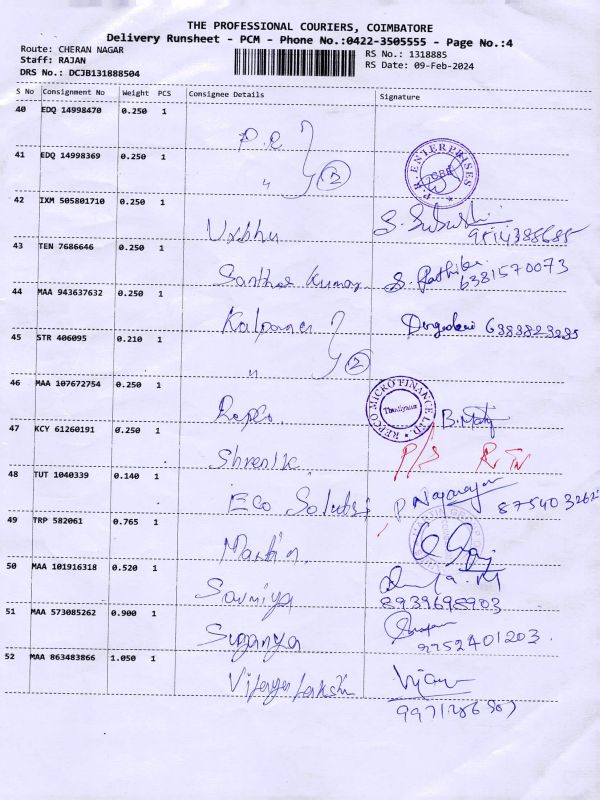 THE PROFESSIONAL COURIERS, COIMBATORE
Delivery Runsheet - PCM - Phone No.:0422-3505555 - Page No.:4
Route: CHERAN NAGAR
RS No.: 1318885
Staff: RAJAN
RS Date: 09-Feb-2024
DRS No.: DCJB131888504
S No Consignment No Weight PCS Consignee Details Signature
40 EDQ 14998470 0.250 1 P.R
41 EDQ 14998369 0.250 1 " 2 P.R. ENTERPRISES CBE
42 IXM 505801710 0.250 1 S.
9514388685
43 TEN 7686646 0.250 1 Santhos Kumar S. Rathika
6381570073
44 MAA 943637632 0.250 1 Kalpana 6383823235
45 STR 406095 0.210 1 " 2
46 MAA 107672754 0.250 1 Repco. REPCO MICRO FINANCE LTD. B.
47 KCY 61260191 0.250 1 Shrenik P/S
48 TUT 1040339 0.140 1 ECO P Nagarajan
49 TRP 582061 0.765 1 Martin
50 MAA 101916318 0.520 1 Sowmiya
8939698903
51 MAA 573085262 0.900 1 Suganya
9952401203
52 MAA 863483866 1.050 1 Vijayalakshi Vijaya